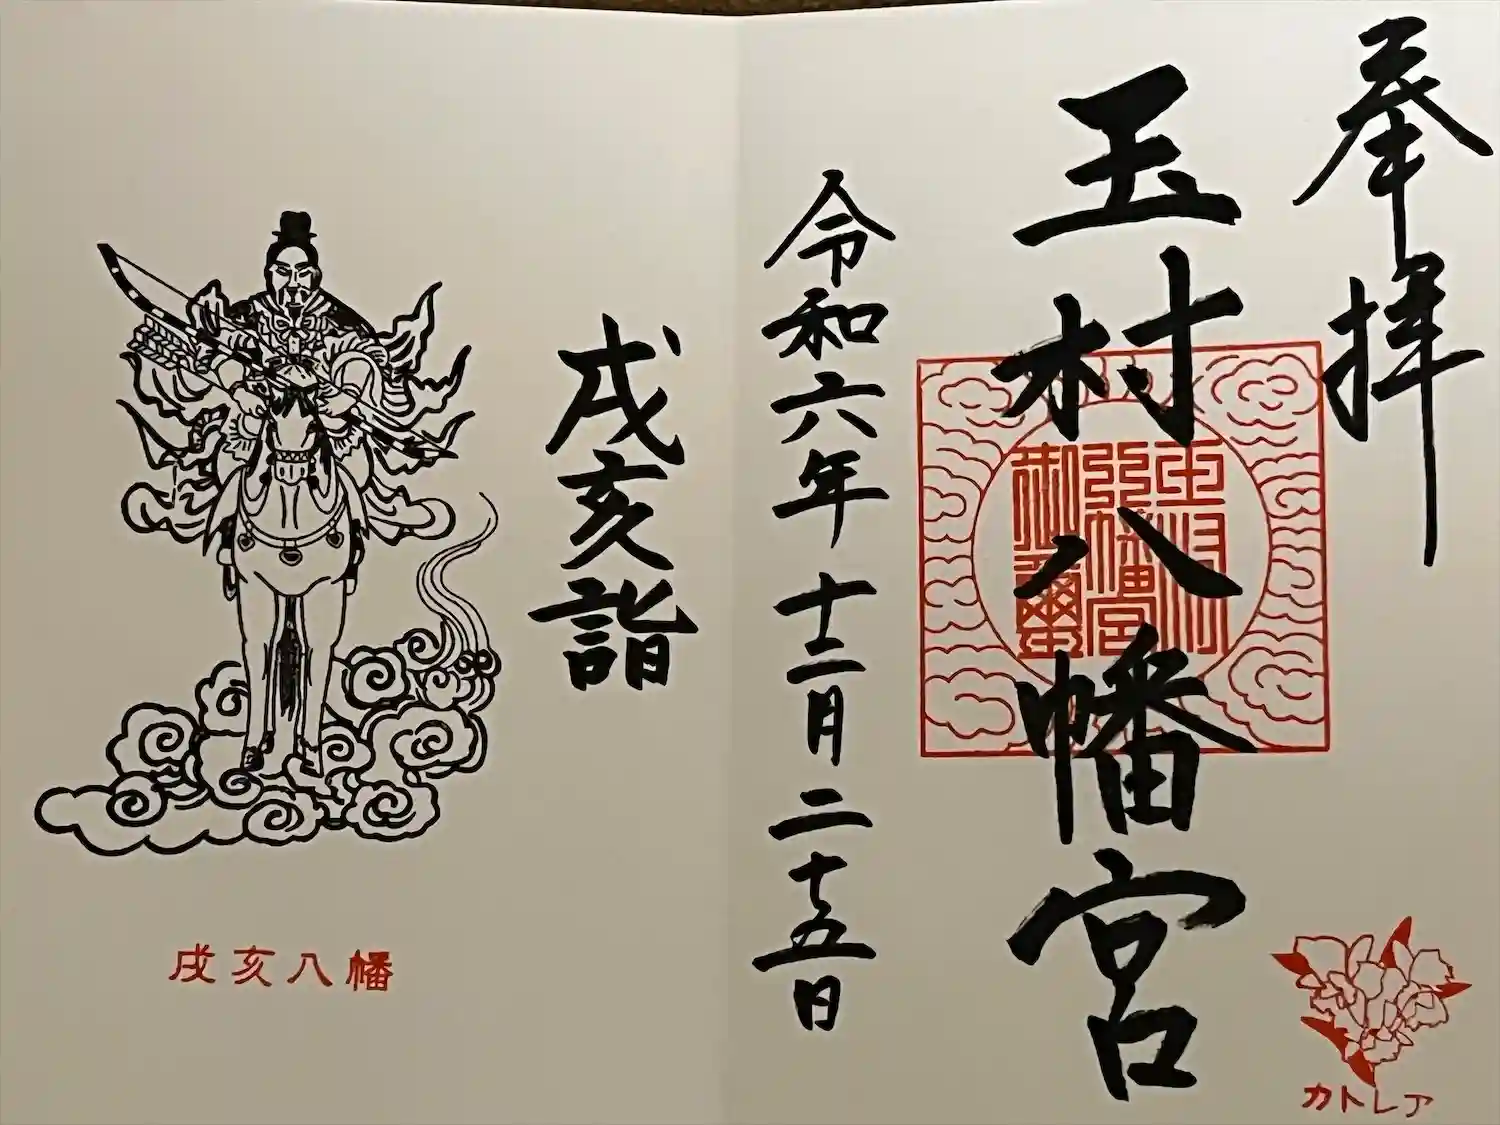 奉拝
玉村八幡宮
玉村
八幡宮
御璽
令和六年十二月二十五日
戌亥詣
戌亥八幡
カトレア